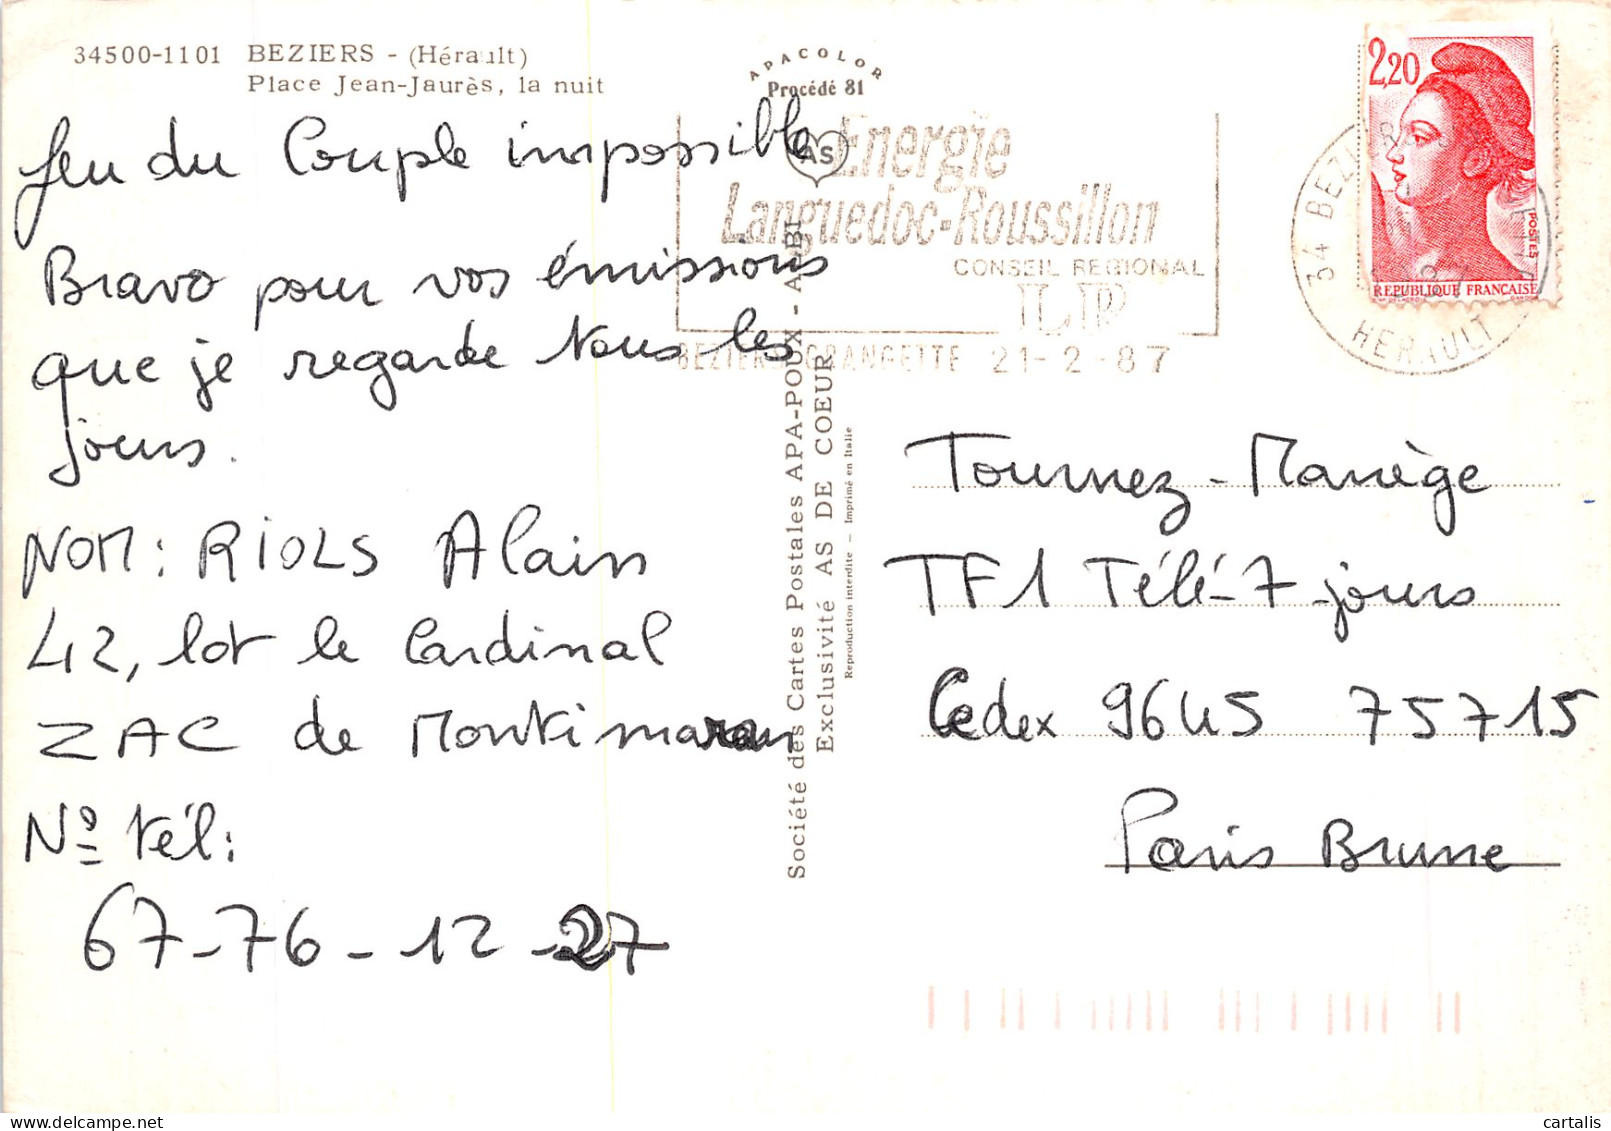 34500-1101 BEZIERS - (Hérault)
Place Jean-Jaurès, la nuit
APACOLOR
Procédé 81
AS
Jeu du Couple impossible
Bravo pour vos émissions
que je regarde tous les
jours.
NOM: RIOLS Alain
42, lot le Cardinal
ZAC de Montimaran
Nº tél:
67-76-12-27
Société des Cartes Postales APA-POUX - ALBI
Exclusivité AS DE COEUR
Reproduction interdite - Imprimé en Italie
Energie
Languedoc-Roussillon
CONSEIL REGIONAL
LR
BEZIERS GRANGETTE 21-2-87
34 BEZIERS
HERAULT
2,20
POSTES
REPUBLIQUE FRANÇAISE
Tournez-Manège
TF1 Télé-7-jours
Cedex 9645 75715
Paris Brune
cartalis